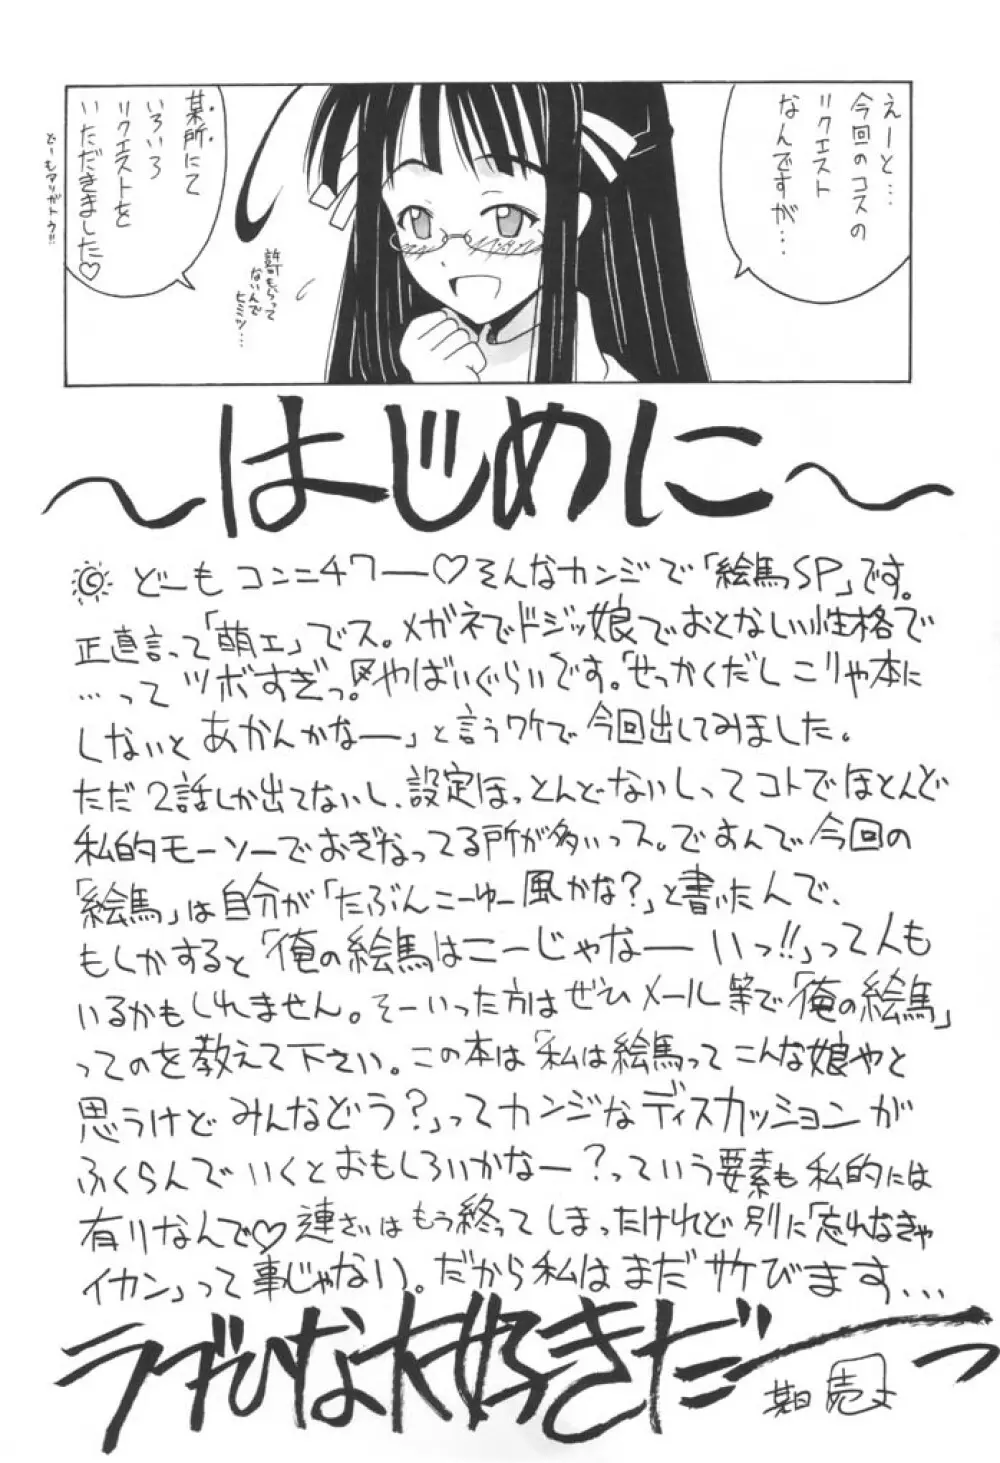 えーと…
今回のコスの
リクエスト
なんですが…
某所にて
いろいろ
リクエストを
いただきました♡
どーもアリガトウ!!
許可もらって
ないんで
ヒミツ…
～はじめに～
どーも コンニチワー♡そんなカンジで「絵馬SP」です。
正直言って「萌エ」でス。メガネでドジッ娘でおとなしい性格で
…って ツボすぎっ。やばいぐらいです。「せっかくだし こりゃ本に
しないと あかんかなー」と言うワケで 今回出してみました。
ただ 2話しか出てないし、設定ほっとんどないしってコトでほとんど
私的モーソーでおぎなってる所が多いっス。ですんで今回の
「絵馬」は自分が「たぶんこーゆー風かな?」と書いたんで、
もしかすると「俺の絵馬はこーじゃなー いっ!!」って人も
いるかもしれません。そーいった方はぜひメール等で「俺の絵馬」
ってのを教えて下さい。この本は「私は絵馬って こんな娘やと
思うけど みんなどう?」ってカンジなディスカッションが
ふくらんでいくとおもしろいかなー?っていう要素も私的には
有りなんで♡連ざいはもう終ってしまったけれど別に「忘れなきゃ
イカン」って事じゃない。だから私はまだサケびます…
ラブひな大好きだーっ